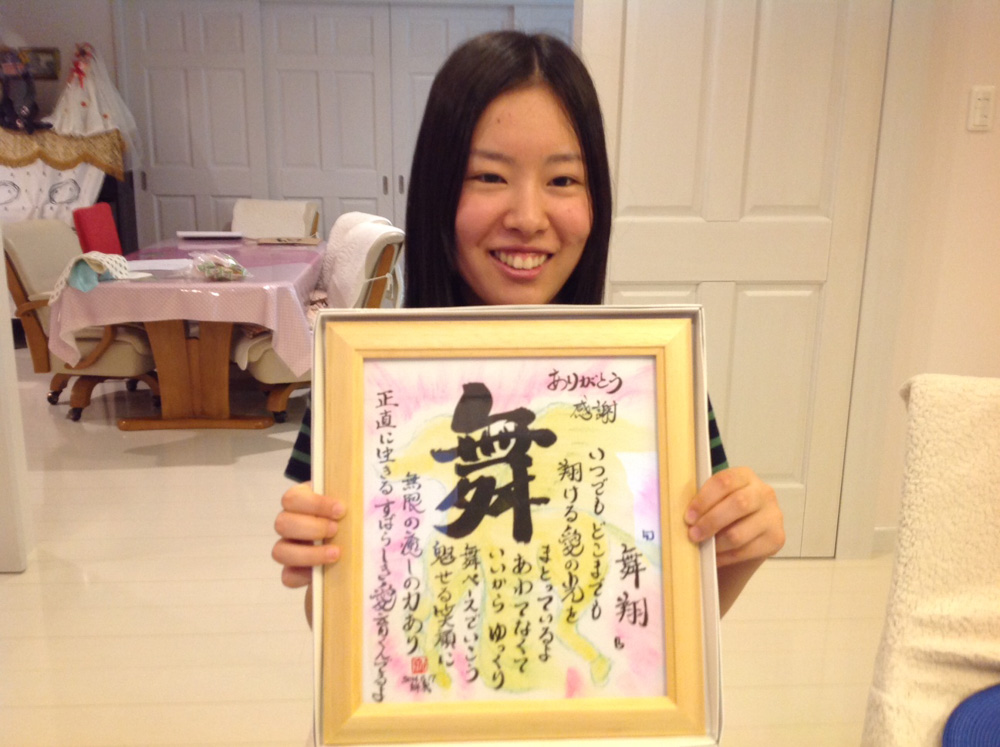 舞翔
ありがとう
感謝
いつでも どこまでも
翔ける愛の光と
まとっているよ
あわてなくて
いいから ゆっくり
舞ペースでいこう
魅せる笑顔に
無限の癒しの力あり
正直に生きる すばらしき愛
舞